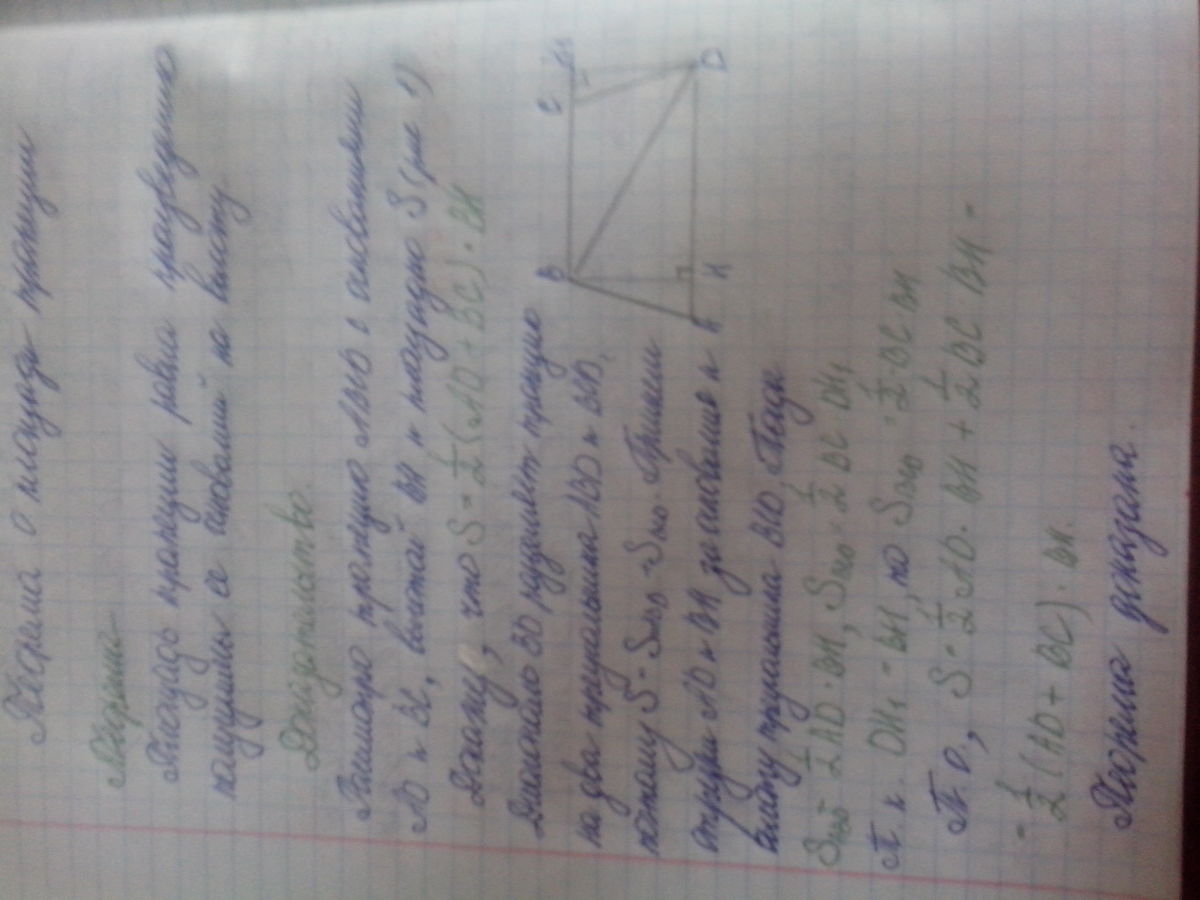 Теорема о площади трапеции
Теорема
Площадь трапеции равна произведению
полусуммы её оснований на высоту.
Доказательство.
Рассмотрю трапецию ABCD с основаниями
AD и BC, высотой BH и площадью S (рис 1)
Докажу, что S = 1/2 (AD + BC) · BH
Диагональ BD разделяет трапецию
на два треугольника ABD и BCD,
поэтому S =
AD и BH за основание и
высоту треугольника Тогда
1/2 AD · BH, S = 1/2 BC DH₁
Т к. DH₁ = BH, то S = 1/2 · BC BH
Т. о., S = 1/2 AD · BH + 1/2 BC BH =
= 1/2 (AD + BC) · BH.
Теорема доказана.
B
C
H₁
A
H
D